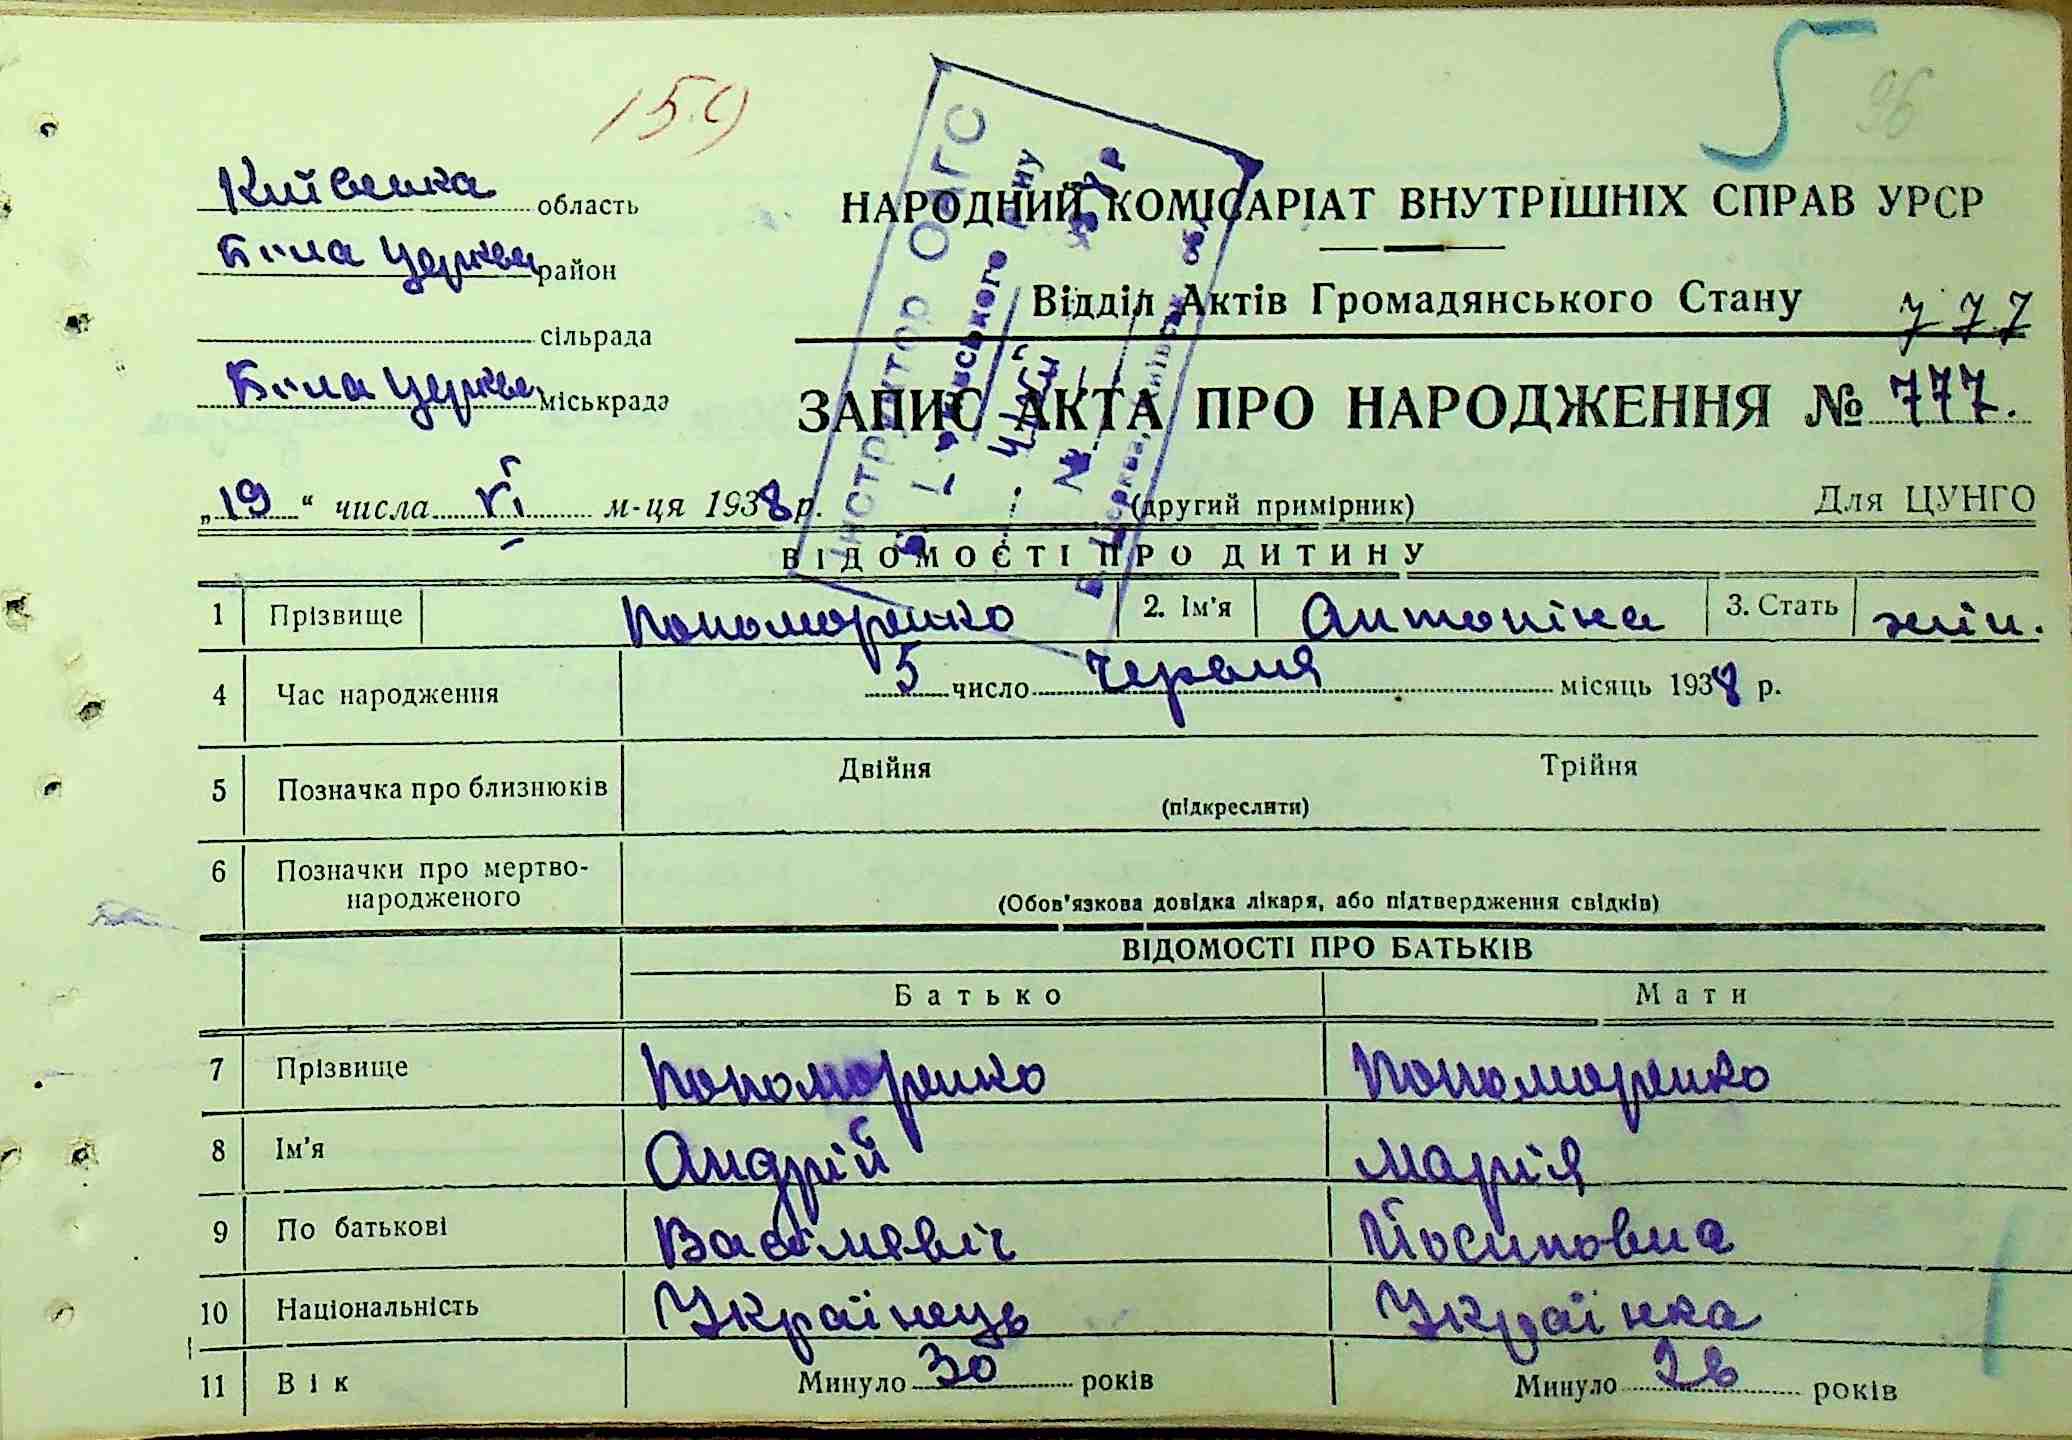 159
5
96
Київська область
Біла Церква район
сільрада
Біла Церква міськрада
НАРОДНИЙ КОМІСАРІАТ ВНУТРІШНІХ СПРАВ УРСР
Відділ Актів Громадянського Стану 777
ЗАПИС АКТА ПРО НАРОДЖЕННЯ № 777.
„19“ числа VI м-ця 1938 р. (другий примірник) Для ЦУНГО
Інструктор ОАГС
ВІДОМОСТІ ПРО ДИТИНУ
1 Прізвище Пономоренко 2. Ім'я Антоніна 3. Стать жін.
4 Час народження 5 число червня місяць 1938 р.
5 Позначка про близнюків Двійня Трійня
(підкреслити)
6 Позначки про мертво-
народженого
(Обов'язкова довідка лікаря, або підтвердження свідків)
ВІДОМОСТІ ПРО БАТЬКІВ
Батько Мати
7 Прізвище Пономоренко Пономоренко
8 Ім'я Андрій Марія
9 По батькові Йосиповна
10 Національність Українець Українка
11 Вік Минуло 30 років Минуло років